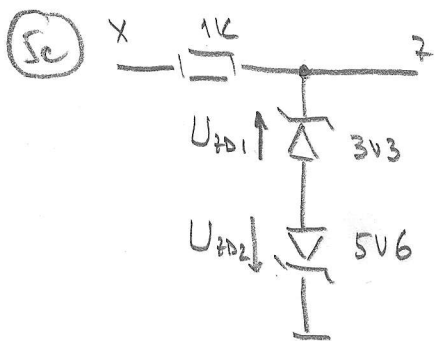 5c
X
1K
Z
U_ZD1
3V3
U_ZD2
5V6